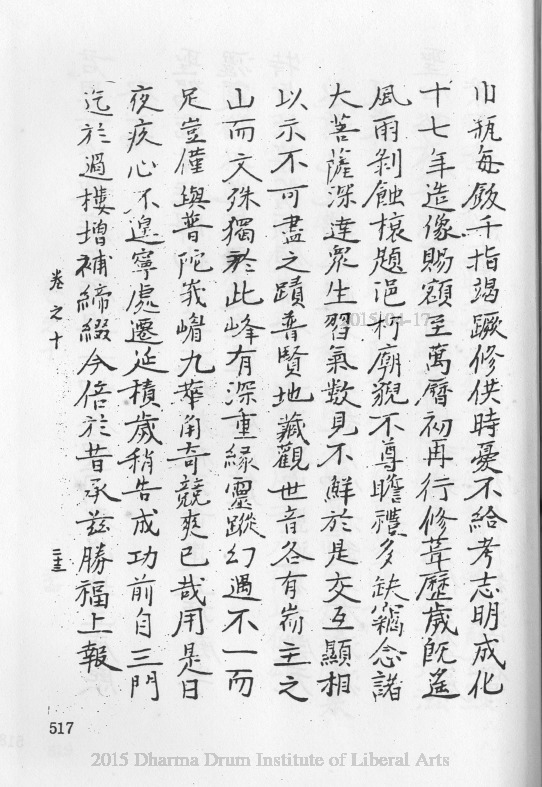 巾瓶每飯千指竭蹶修供時憂不給考志明成化
十七年造像賜額至萬曆初再行修葺歷歲既遙
風雨剝蝕榱題浥朽廟貌不尊瞻禮多缺竊念諸
大菩薩深達眾生習氣數見不鮮於是交互顯相
以示不可盡之蹟普賢地藏觀世音各有耑主之
山而文殊獨於此峰有深重緣靈蹤幻遇不一而
足豈僅與普陀峩嵋九華角奇競爽已哉用是日
夜疚心不遑寧處遷延積歲稍告成功前自三門
迄於過樓增補締綴今倍於昔承茲勝福上報
卷之十
二十三
517
2015-04-17
2015 Dharma Drum Institute of Liberal Arts